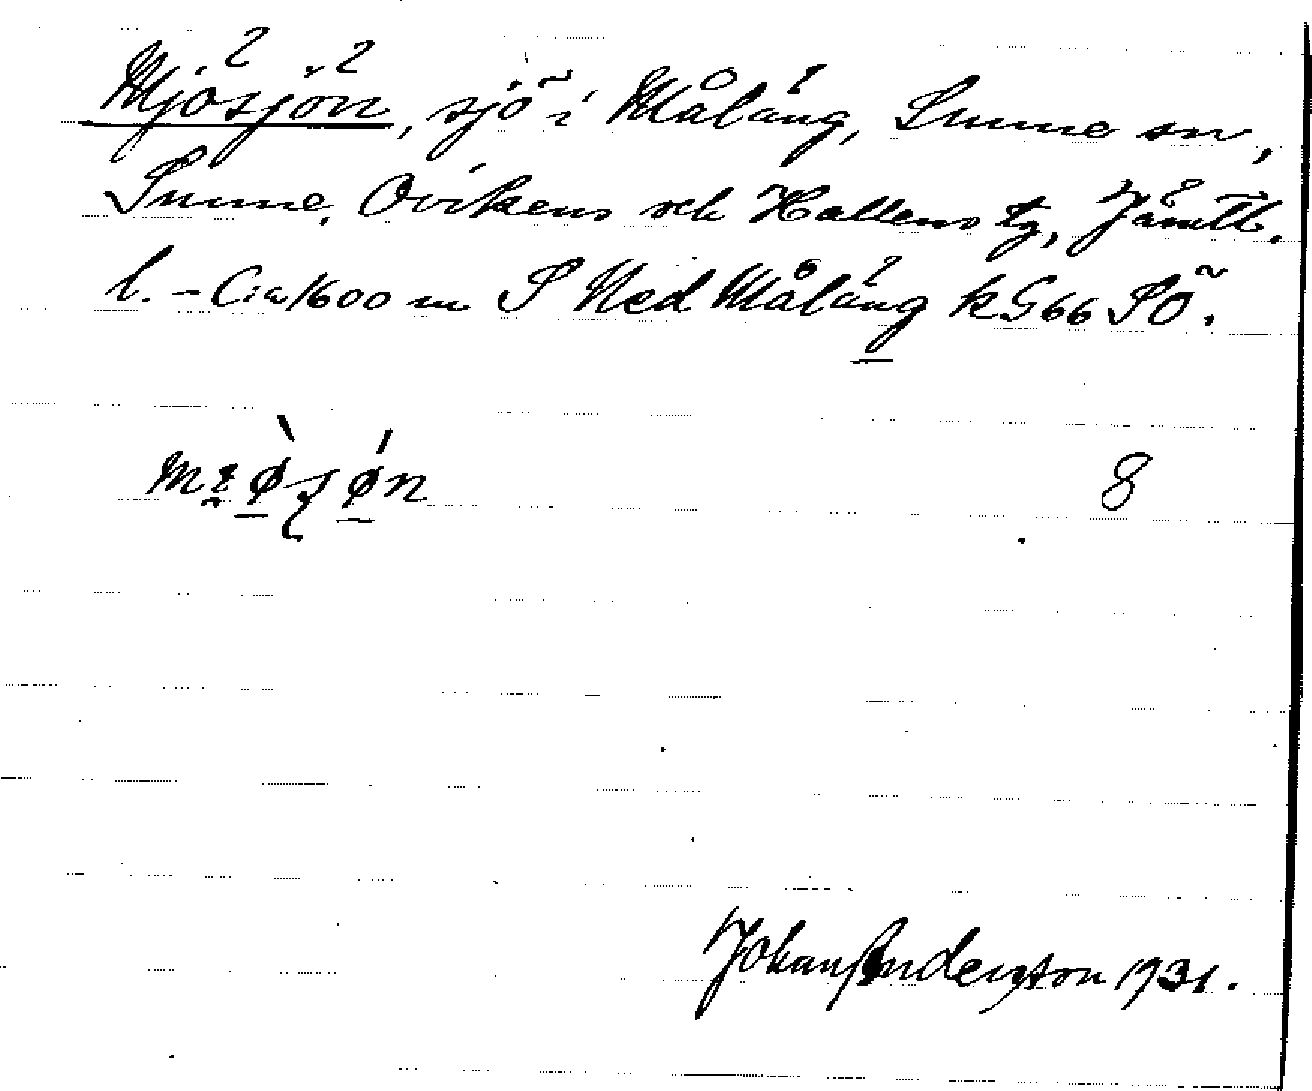 Mjösjön, sjö i Målång, Sunne sn,
Sunne, Ovikens och Hallens tg, Jämtl.
l. - Cia 1600 m S Ned Målång kG66 SÖ.
8
Johan Anderzson 1931.